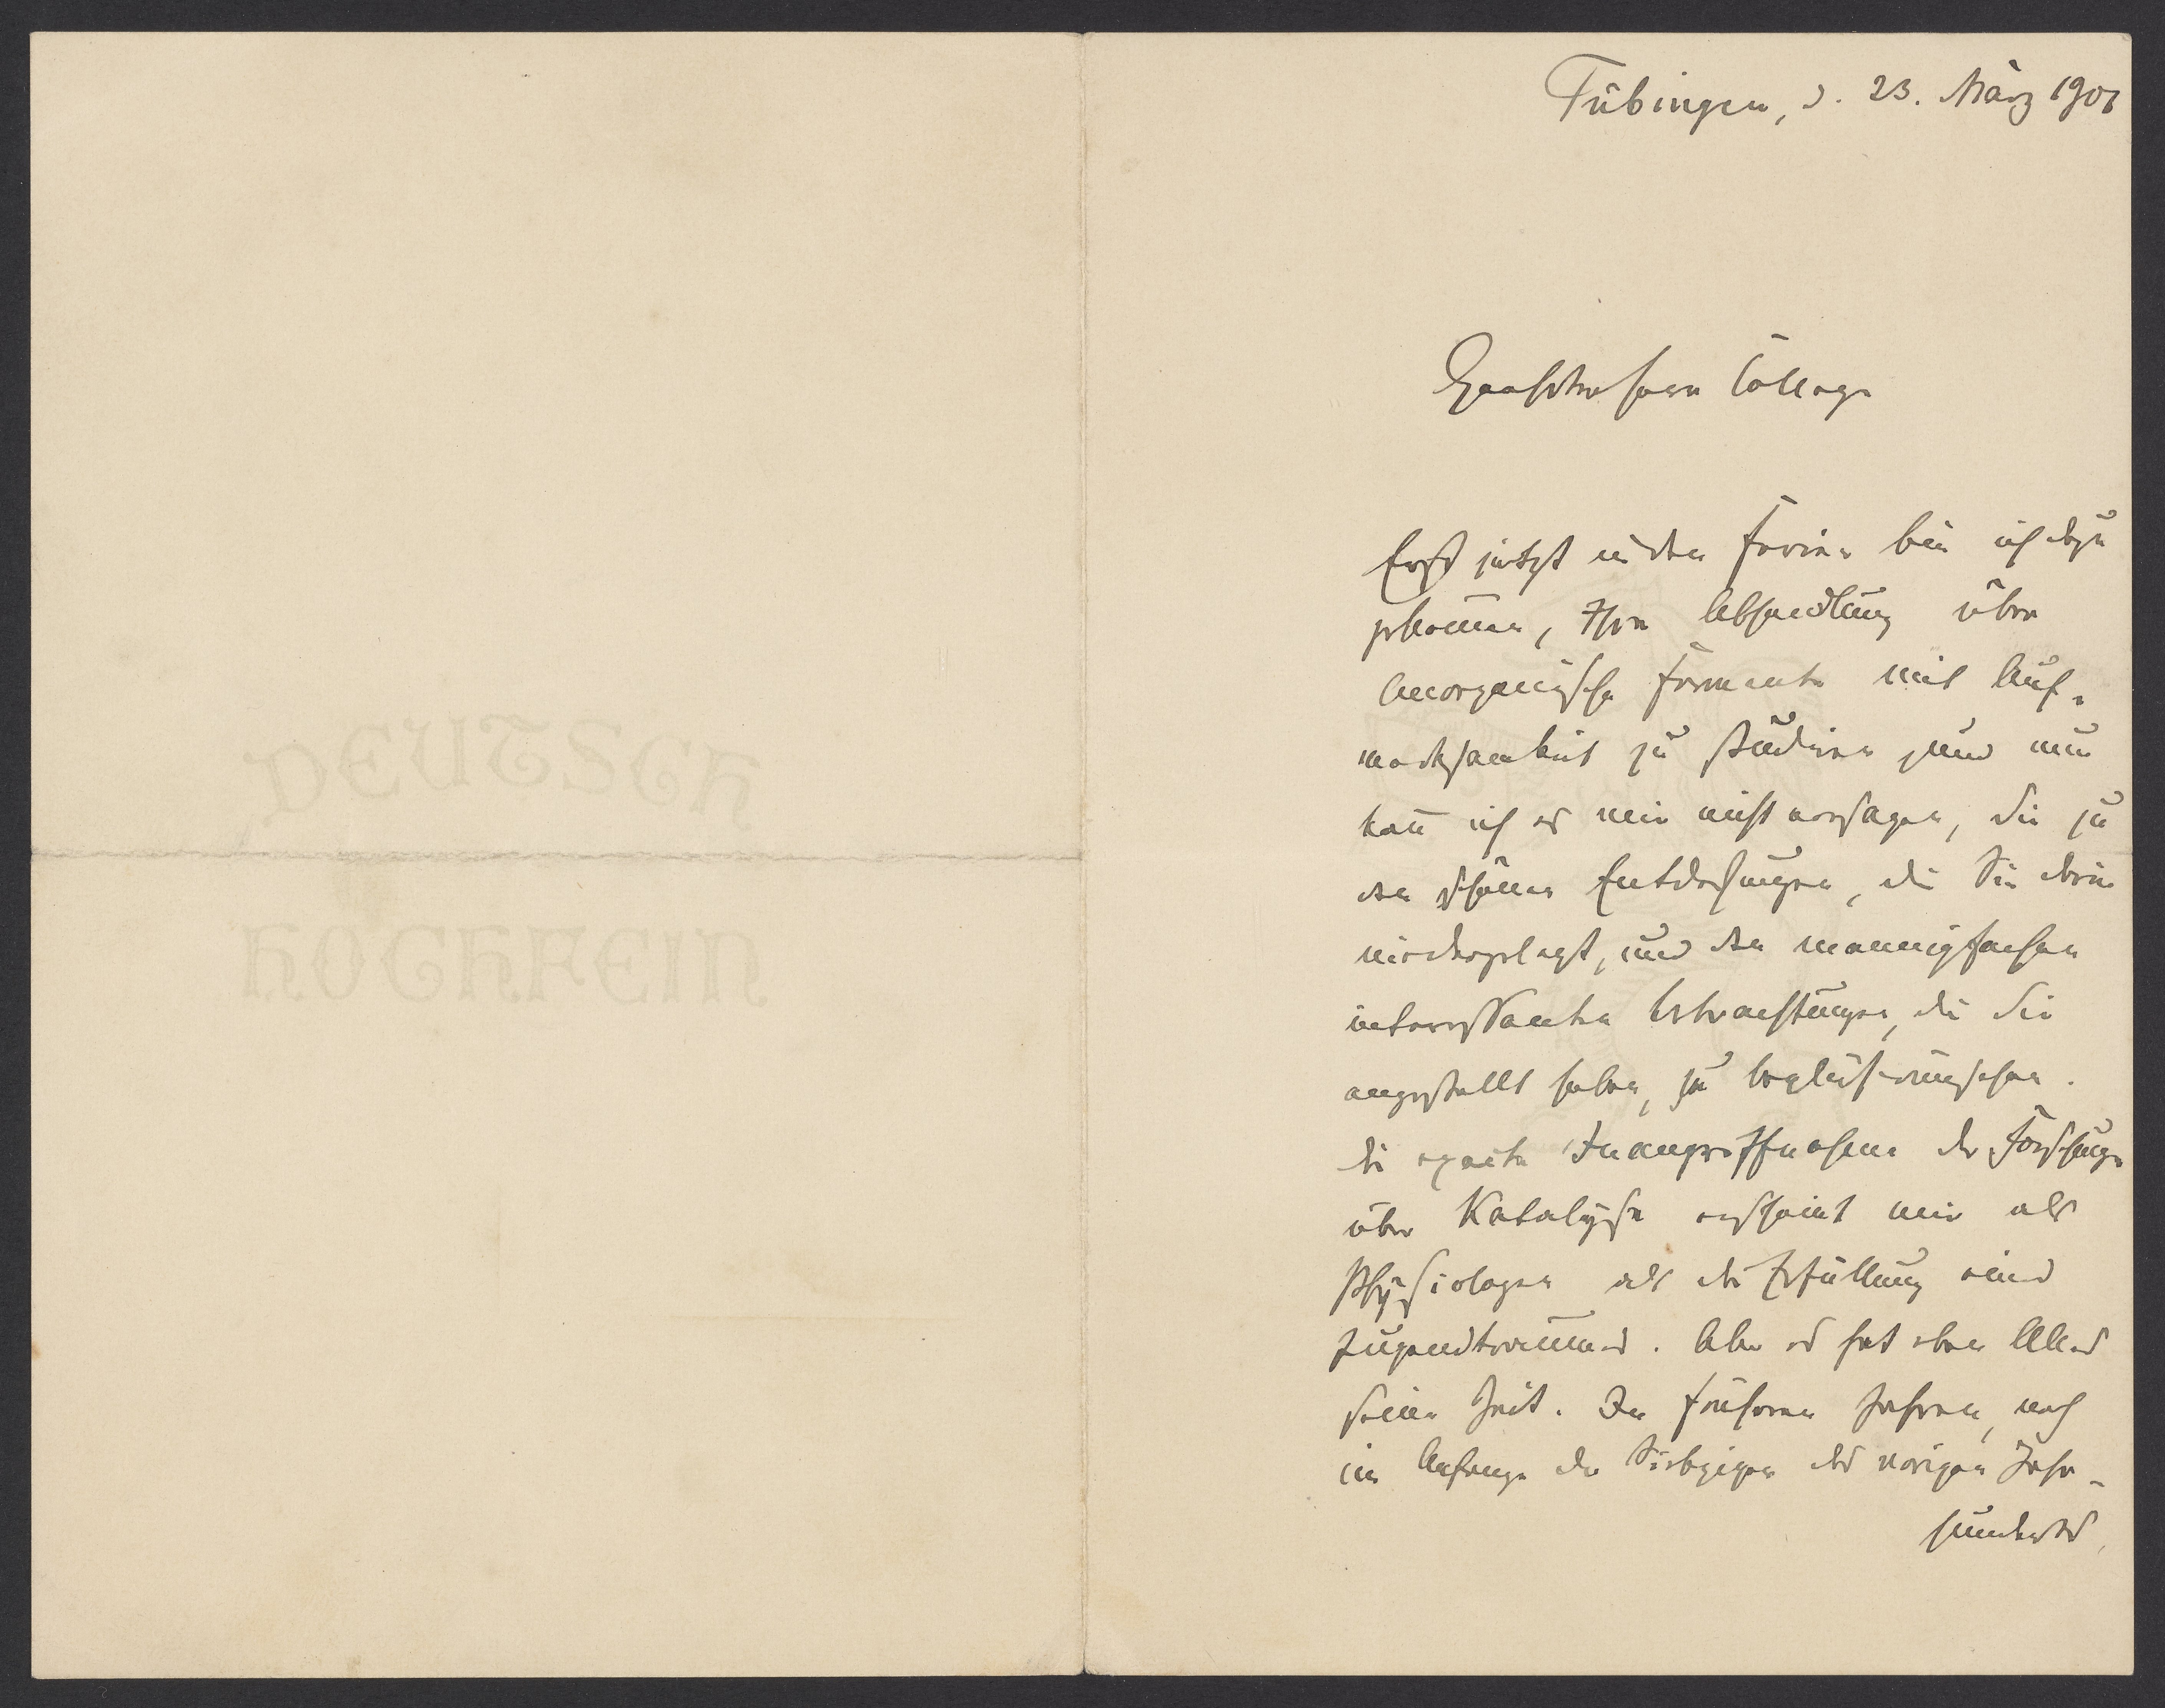 DEUTSCH
HOCHFEIN
Tübingen, d. 23. März 1901
Geehrter Herr College
Erst jetzt in den Ferien bin ich dazu
gekommen, Ihre Abhandlung über
Anorganische Fermente mit Auf-
merksamkeit zu studiren und nun
kann ich es mir nicht versagen, Sie zu
den schönen Entdeckungen, die Sie darin
niedergelegt, und den mannigfachen
interessanten Betrachtungen, die Sie
angestellt haben, zu beglückwünschen.
Die exacte Inangriffnahme der Forschungen
über Katalyse erscheint mir als
Physiologen als die Erfüllung eines
Jugendtraumes. Aber es hat eben Alles
seine Zeit. In früheren Jahren, noch
im Anfange der Siebziger des vorigen Jahr-
hunderts,